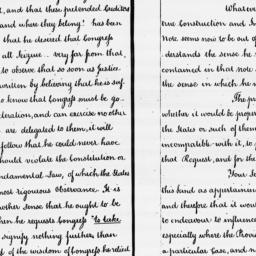 t, and that these pretended Creditors
and where they belong? has been
that he desired that Congress
all Seizure.. very far from that,
to observe that so soon as Justice
written by believing that he is suf.
to know that Congress must be go.
deration, and can exercise no other
are delegated to them, it will
follow that he could never have
should violate the Constitution or
undamental Law, of which the States
most rigourous observance. It is
nother Sense that he ought to be
hen he requests Congress "to take
signify nothing further than
of the wisdom of Congress he relied
Whatever
true Construction and I
Note seems now to be out of
derstands the sense he
contained in that note
the sense in which he
The pr
whether it would be proper
the States or such of them
incompatible with it, to
that Request, and for the
Your Se
this kind as appertaining
and therefore that it would
to endeavour to influence
especially where the Provi
a particular Case, and n